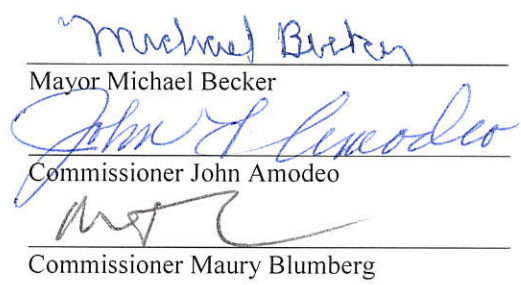 Michael Becker
Mayor Michael Becker
John F Amodeo
Commissioner John Amodeo
Commissioner Maury Blumberg